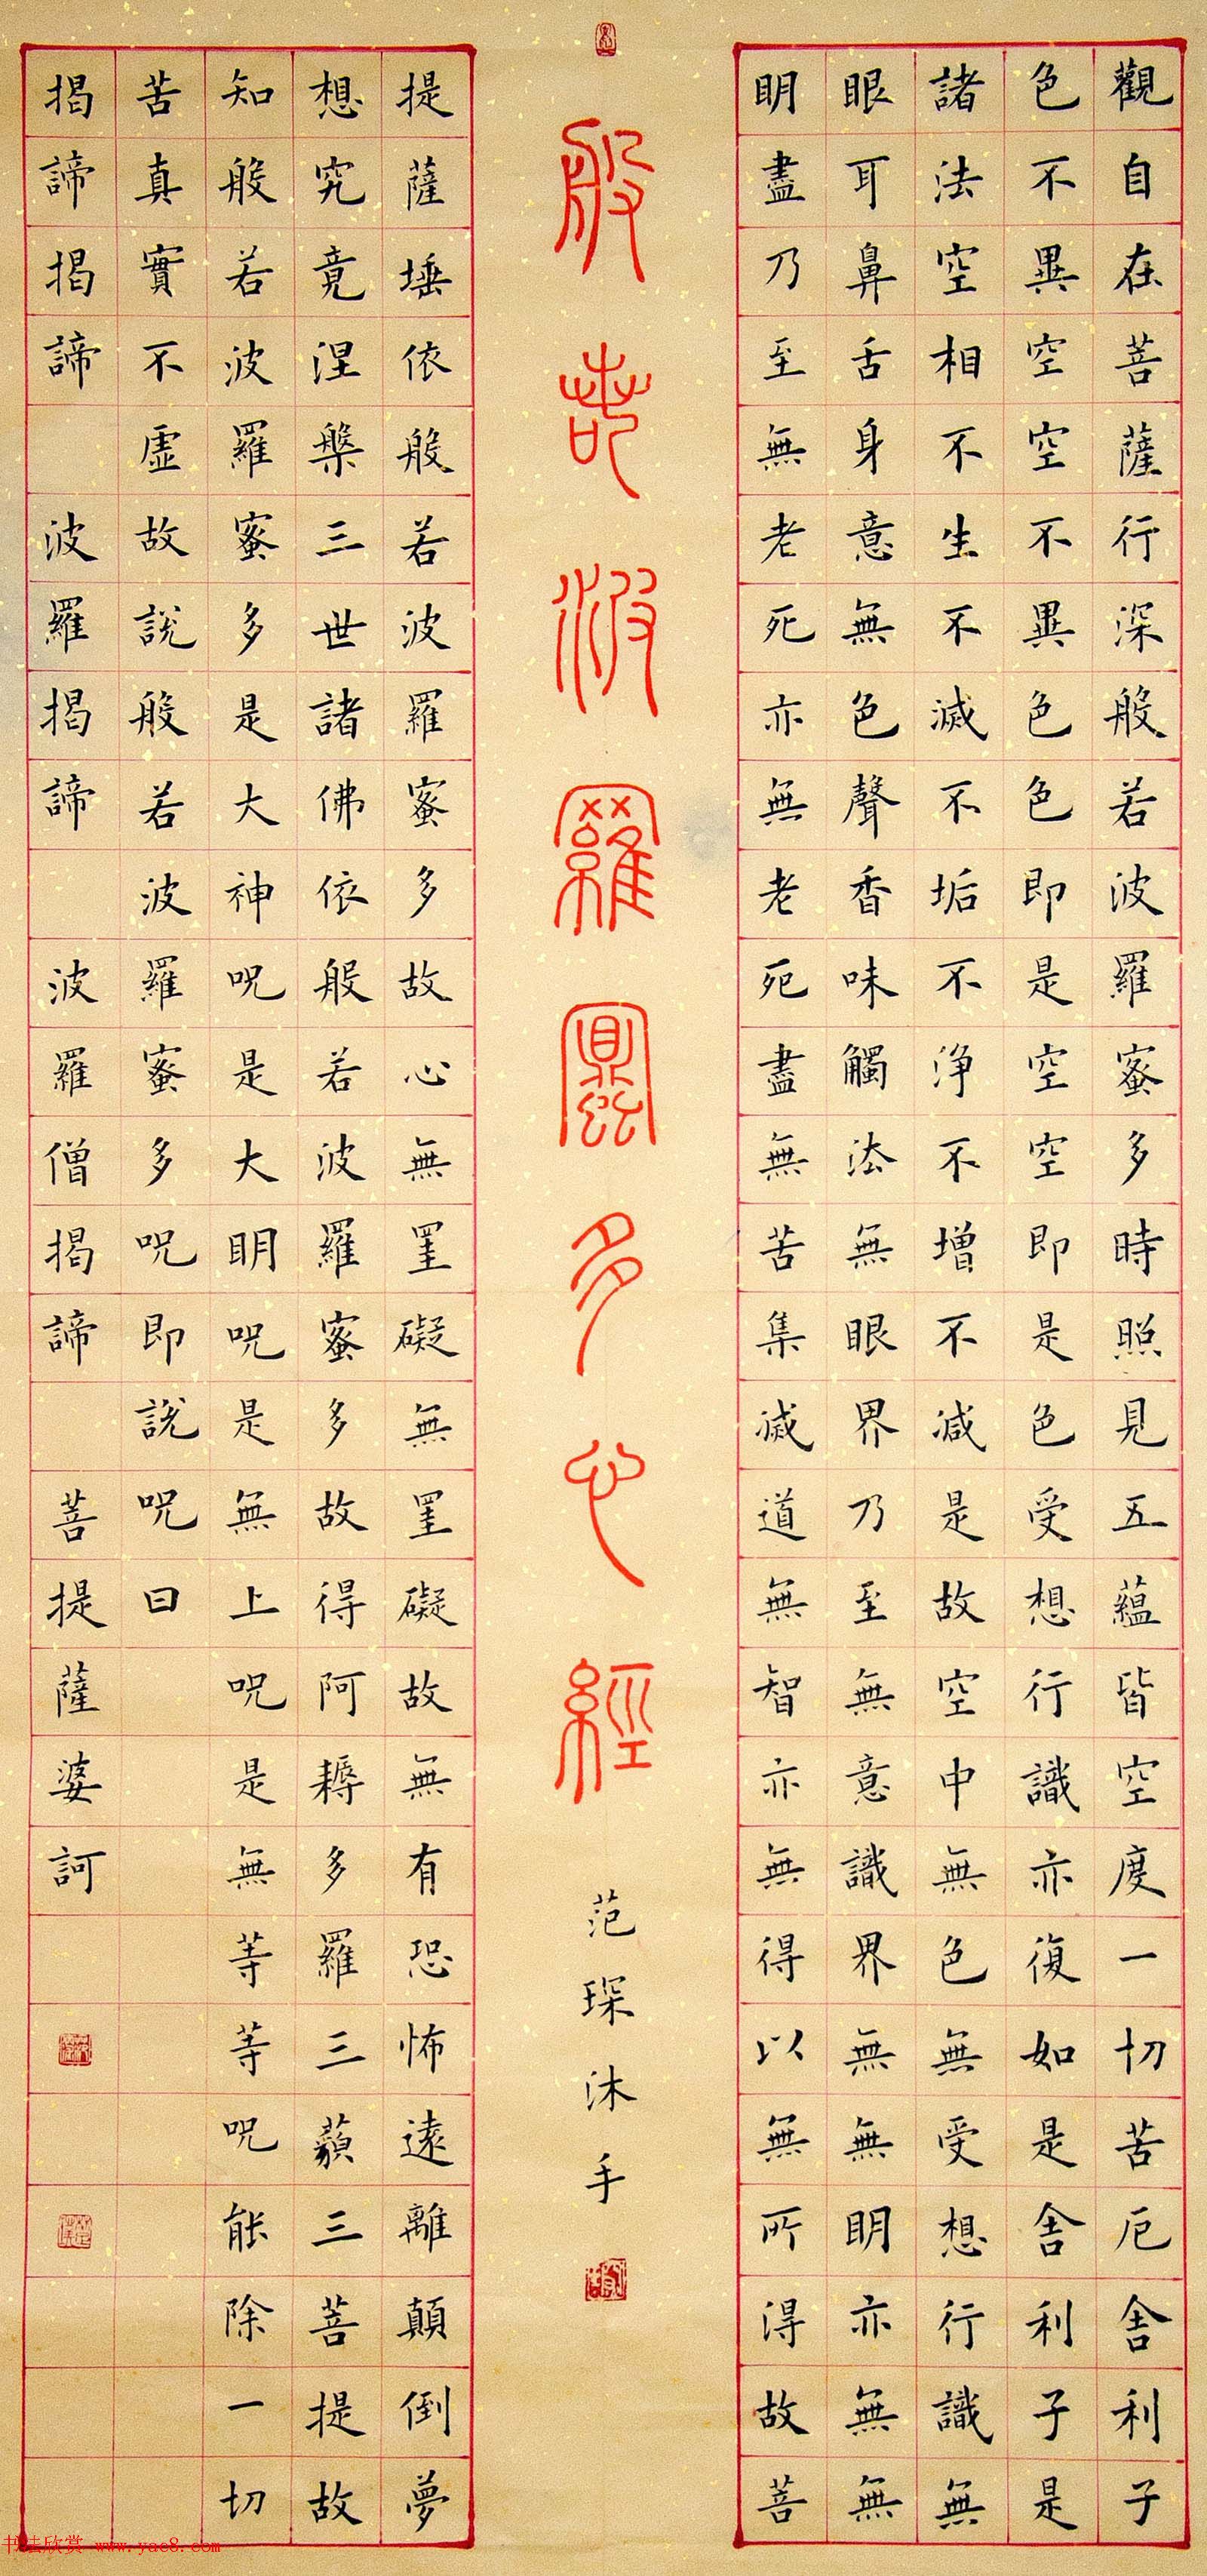 觀自在菩薩行深般若波羅蜜多時照見五蘊皆空度一切苦厄舍利子
色不異空空不異色色即是空空即是色受想行識亦復如是舍利子是
諸法空相不生不滅不垢不浄不增不減是故空中無色無受想行識無
眼耳鼻舌身意無色聲香味觸法無眼界乃至無意識界無無明亦無無
明盡乃至無老死亦無老死盡無苦集滅道無智亦無得以無所得故菩
般若波羅蜜多心經
范琛沐手
提薩埵依般若波羅蜜多故心無罣礙無罣礙故無有恐怖遠離顛倒夢
想究竟涅槃三世諸佛依般若波羅蜜多故得阿耨多羅三藐三菩提故
知般若波羅蜜多是大神呪是大明呪是無上呪是無等等呪能除一切
苦真實不虛故說般若波羅蜜多呪即說呪曰
揭諦揭諦 波羅揭諦 波羅僧揭諦 菩提薩婆訶
书法欣赏 www.yac8.com